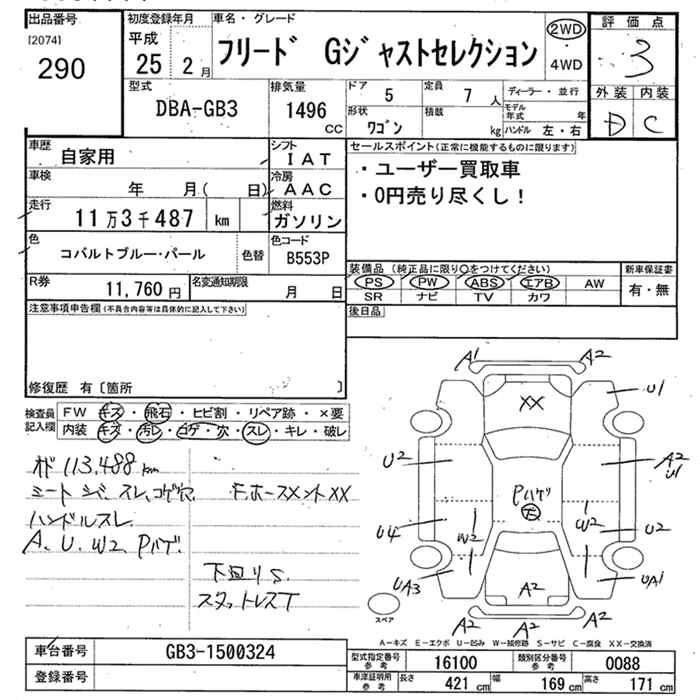 出品番号 初度登録年月 車名・グレード 評価点
[2074] 平成 2WD
290 25 2月 フリード Gジャストセレクション ・ 3
4WD
型式 排気量 ドア 定員 ディーラー・並行 外装 内装
DBA-GB3 1496 cc 5 7 人 モデル年式 年 D C
形状 積載
ワゴン kg ハンドル 左・右
車歴 シフト セールスポイント(正常に機能するものに限ります)
自家用 IAT ・ユーザー買取車
車検 冷房 ・0円売り尽くし!
年 月( 日) AAC
走行 燃料
11万3千487 km ガソリン
色 色コード
コバルトブルー・パール 色替 B553P
装備品 (純正品に限り○をつけてください) 新車保証書
R券 名変通知期限 PS PW ABS エアB AW 有・無
11,760円 月 日 SR ナビ TV カワ
注意事項申告欄(不具合内容等は具体的に記入して下さい) 後日品
修復歴 有〔箇所 〕
検査員 FW キズ・飛石・ヒビ割・リペア跡・×要
記入欄 内装・キズ・汚レ・コゲ・穴・スレ・キレ・破レ
113,488 km
シートシミ、スレ、コゲ穴 F.ホースメントXX
ハンドルスレ
A、U、W2、Pハゲ
下回りS
スタットレスT
A1 A2
XX U1
U2 A2 U1
Pハゲ
大
U4 W2 W2 U2
UA3 A2 UA1
A2 A2
スペア
A-キズ E-エクボ U-凹み W-補修跡 S-サビ C-腐食 XX-交換済
車台番号 GB3-1500324
型式指定番号 参考 16100 類別区分番号 参考 0088
登録番号
車庫証明用 参考 長さ 421 cm 幅 169 cm 高さ 171 cm